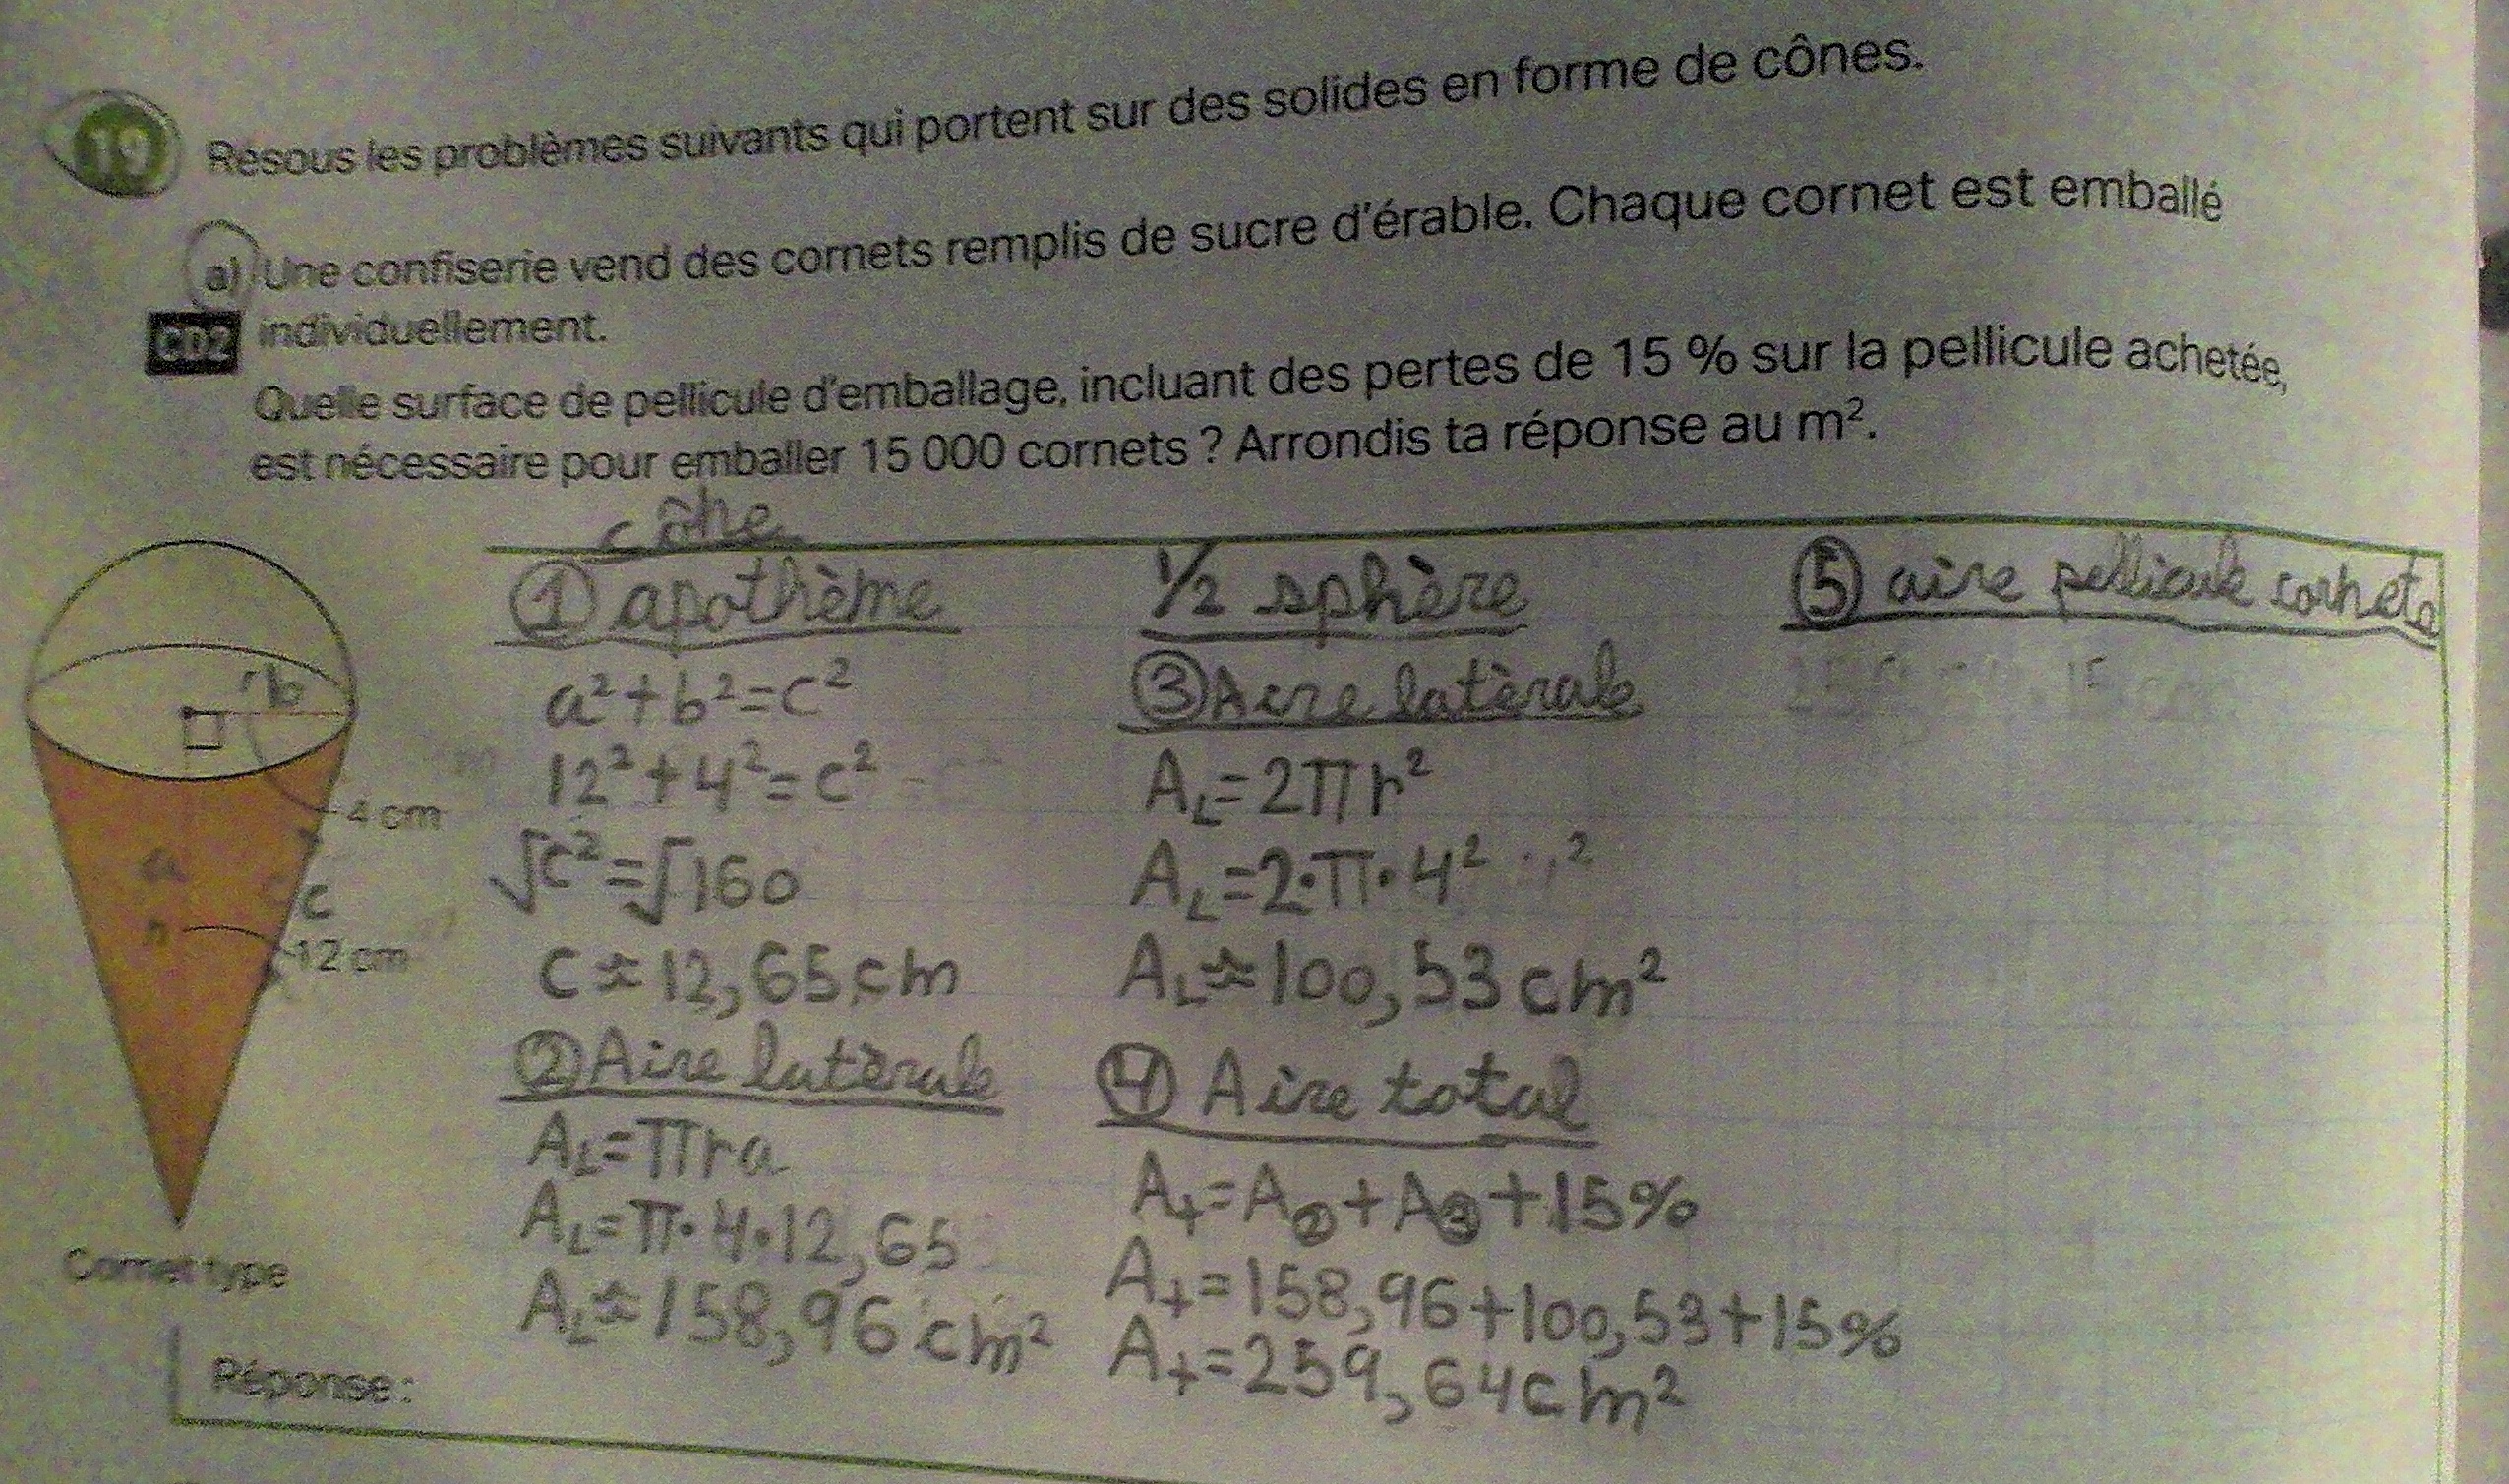 19 Résous les problèmes suivants qui portent sur des solides en forme de cônes.
a) Une confiserie vend des cornets remplis de sucre d'érable. Chaque cornet est emballé
CD2 individuellement.
Quelle surface de pellicule d'emballage, incluant des pertes de 15 % sur la pellicule achetée,
est nécessaire pour emballer 15 000 cornets ? Arrondis ta réponse au m².
b
4 cm
a
c
h
12 cm
Cornet type
cône
① apothème
a²+b²=c²
12²+4²=c²
√c²=√160
c≈12,65cm
② Aire latèrale
A_L=πra
A_L=π·4·12,65
A_L≈158,96cm²
1/2 sphère
③ Aire latèrale
A_L=2πr²
A_L=2·π·4²
A_L≈100,53cm²
④ Aire total
A_t=A②+A③+15%
A_t=158,96+100,53+15%
A_t=259,64cm²
⑤ aire pellicule cornets
Réponse :